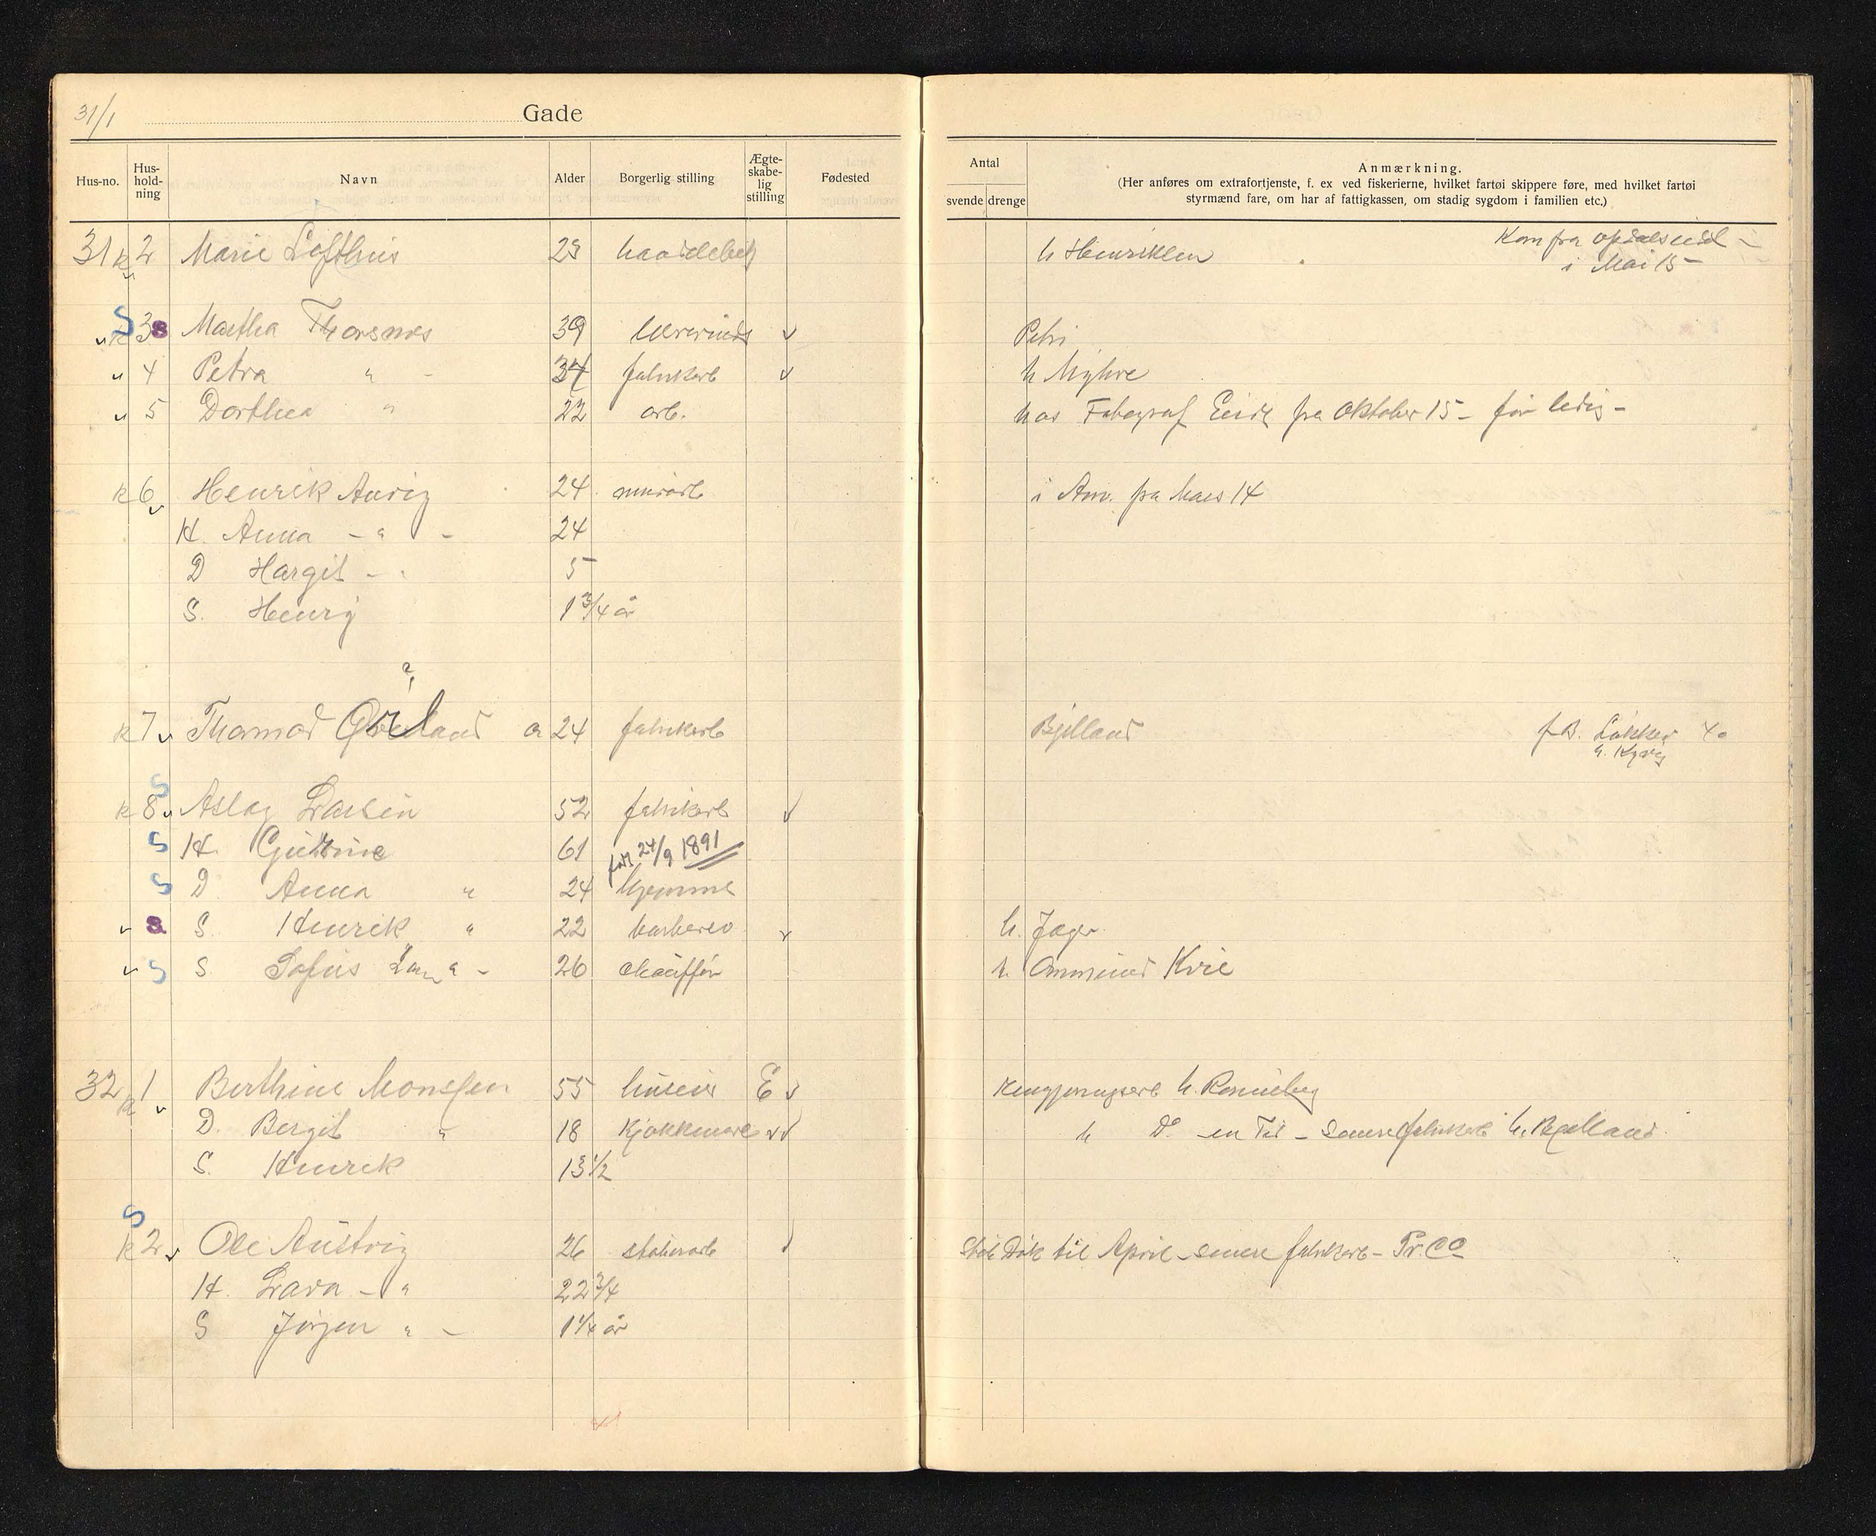 31/1 Gade
Hus-no. Hus-hold-ning Navn Alder Borgerlig stilling Ægte-skabe-lig stilling Fødested
Antal svende drenge Anmærkning.
(Her anføres om extrafortjenste, f. ex ved fiskerierne, hvilket fartøi skippere føre, med hvilket fartøi
styrmænd fare, om har af fattigkassen, om stadig sygdom i familien etc.)
31 k 2 Marie Lofthus 23 h Henriksen Kom fra
i Mai 15 -
S k 3 s Martha Thorsnes 39 lærerinde v Petri
v 4 Petra " - 34 fabrikarb v h Myhre
v 5 Dorthea " 22 arb. hos Fotograf Eide fra Oktober 15 - før ledig -
k 6 v Henrik Auvig 24 murarb i Am. fra Mars 14
H. Anna - " - 24
D Margit - " 5
S. Henry 1 3/4 år
?
k 7 v Thomas land a 24 fabrikarb Bjelland f B. Løkkev 40
S
k 8 v Aslag Larsen 52 fabrikarb v
S H. 61 født 24/9 1891
S D Anna " 24 hjemme
v s S. Henrik " 22 barberer v h. Jæger
v S S Sofus " - 26 chauffør h. Ommund Kvie
32 k 1 v Berthine Monssen 55 huseier E v rengjøringsarb h. Ronneberg
D. Bergit " 18 v v h Do en Tid - senere fabrikarb h. Bjelland
S. Henrik 13 1/2
S
k 2 v Ole Austvig 26 v til April - senere fabrikarb - Pr. Co
H. Lava - " 22 3/4
S Jørgen " - 1 1/4 år